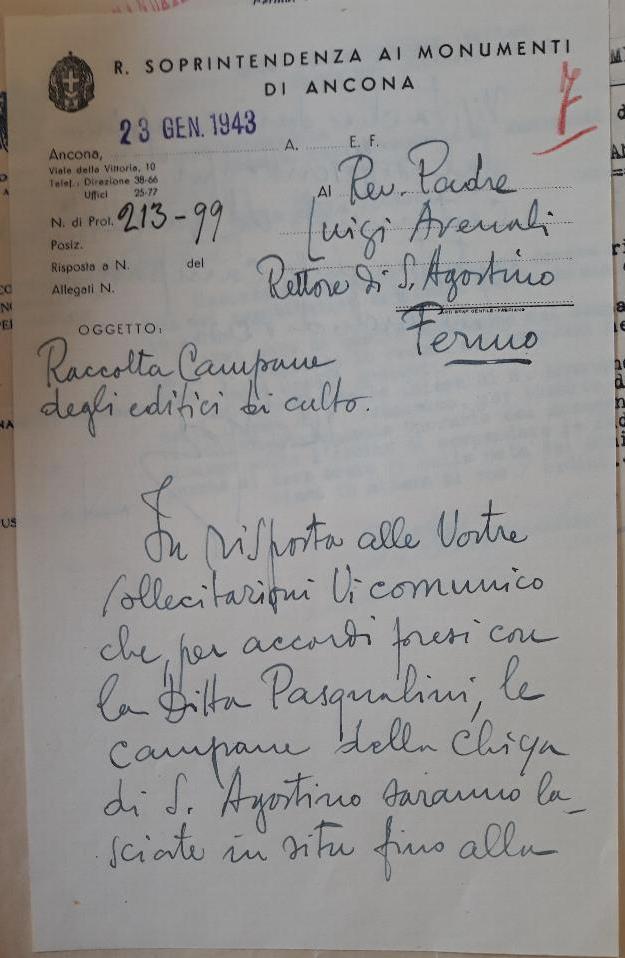 R. SOPRINTENDENZA AI MONUMENTI
DI ANCONA
7
23 GEN. 1943
Ancona, A. E. F.
Viale della Vittoria, 10
Telef.: Direzione 38-66
Uffici 25-77
Al Rev. Padre
N. di Prot. 213-99
Luigi Avenali
Posiz.
Risposta a N. del
Rettore di S. Agostino
Allegati N.
Fermo
OGGETTO:
Raccolta Campane
degli edifici di culto.
In risposta alle Vostre
sollecitazioni Vi comunico
che, per accordi presi con
la Ditta Pasqualini, le
campane della chiesa
di S. Agostino saranno la-
sciate in situ fino alla